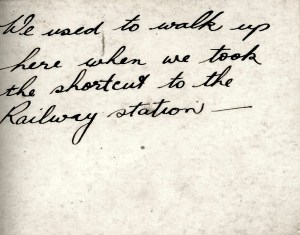 We used to walk up
here when we took
the shortcut to the
Railway station —